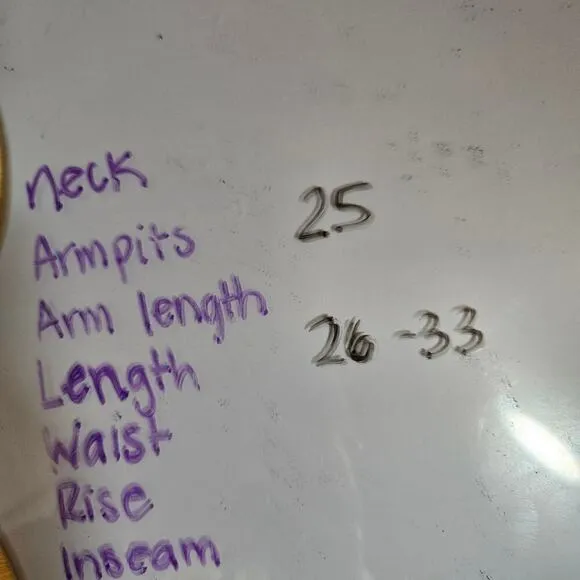 neck
Armpits 25
Arm length
Length 26 -33
Waist
Rise
Inseam